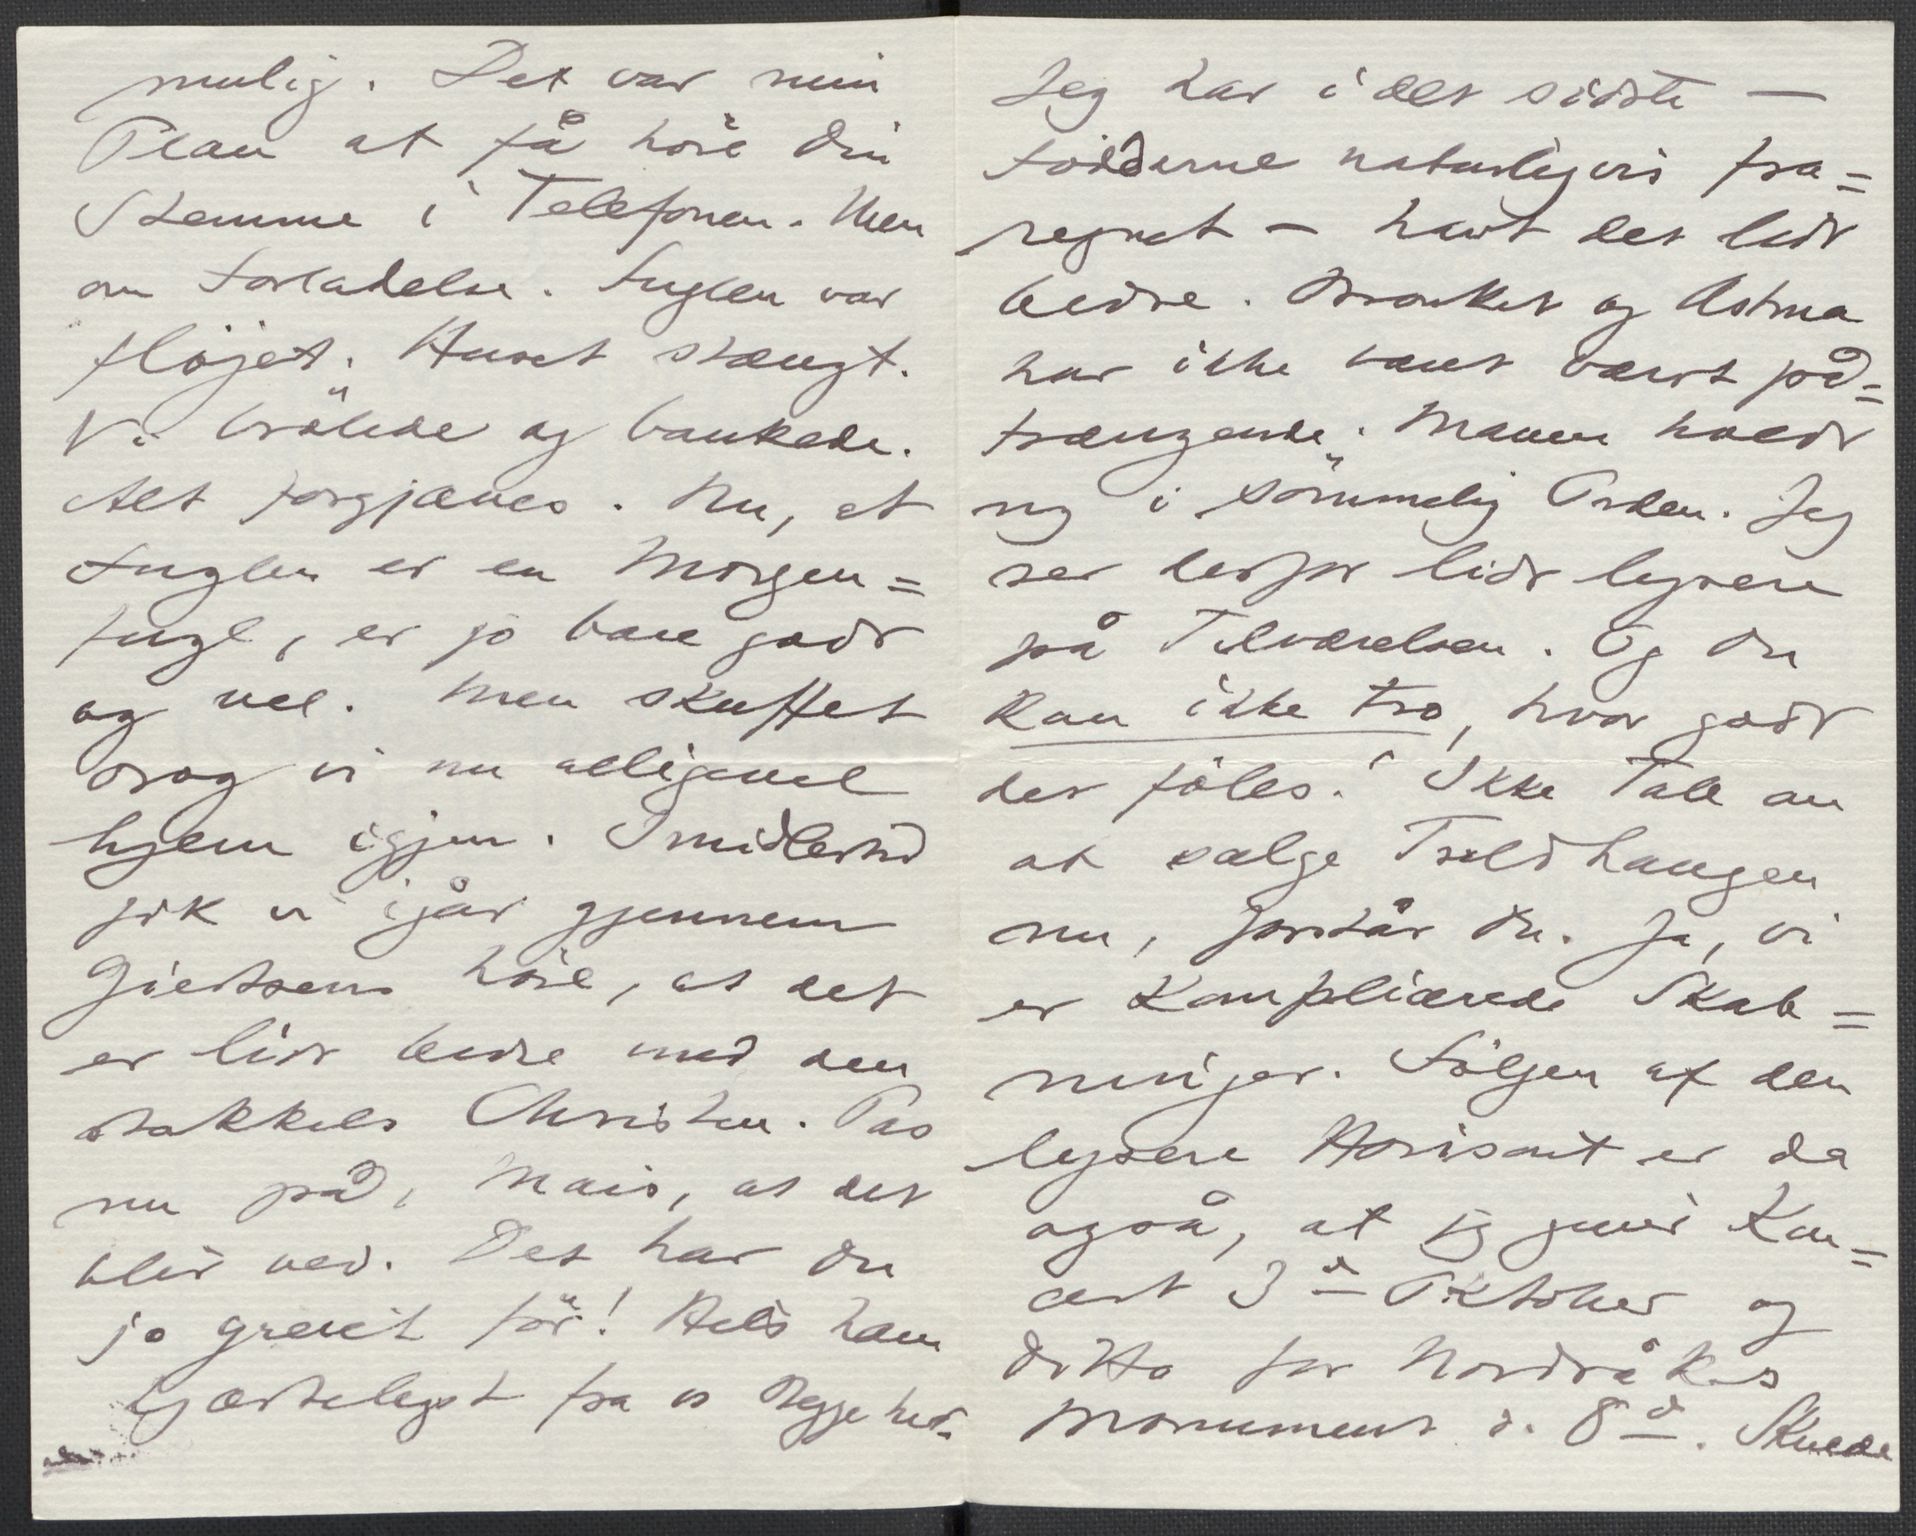 mulig. Det var min
Plan at få höre Din
Stemme i Telefonen. Men
om Forladelse. Fuglen var
flöjet. Huset stængt.
Vi brölede og bankede.
Alt forgjæves. Nu, at
Fuglen er en Morgen=
fugl, er jo bare godt
og vel. Men skuffet
drog vi nu alligevel
hjem igjen. Imidlertid
fik vi igår gjennem
Giertsens höre, at det
er lidt bedre med den
stakkels Christen. Pas
nu på, Mais, at det
blir ved. Det har Du
jo greiet för! Hils ham
hjærteligst fra os begge her.
Jeg har i det sidste —
Födderne naturligvis fra=
regnet — havt det lidt
bedre. Bronkit og Astma
har ikke været så på=
trængende. Maven holdt
sig i sömmelig Orden. Jeg
ser derfor lidt lysere
på Tilværelsen. Og Du
kan ikke tro, hvor godt
det föles! Ikke Tale om
at sælge Troldhaugen
nu, forstår Du. Ja, vi
er komplicerede Skab=
ninger. Fölgen af den
lysere Horisont er da
også, at jeg giver Kon=
cert 3d Oktober og
ditto for Nordråks
Monument d. 8d. Skulde